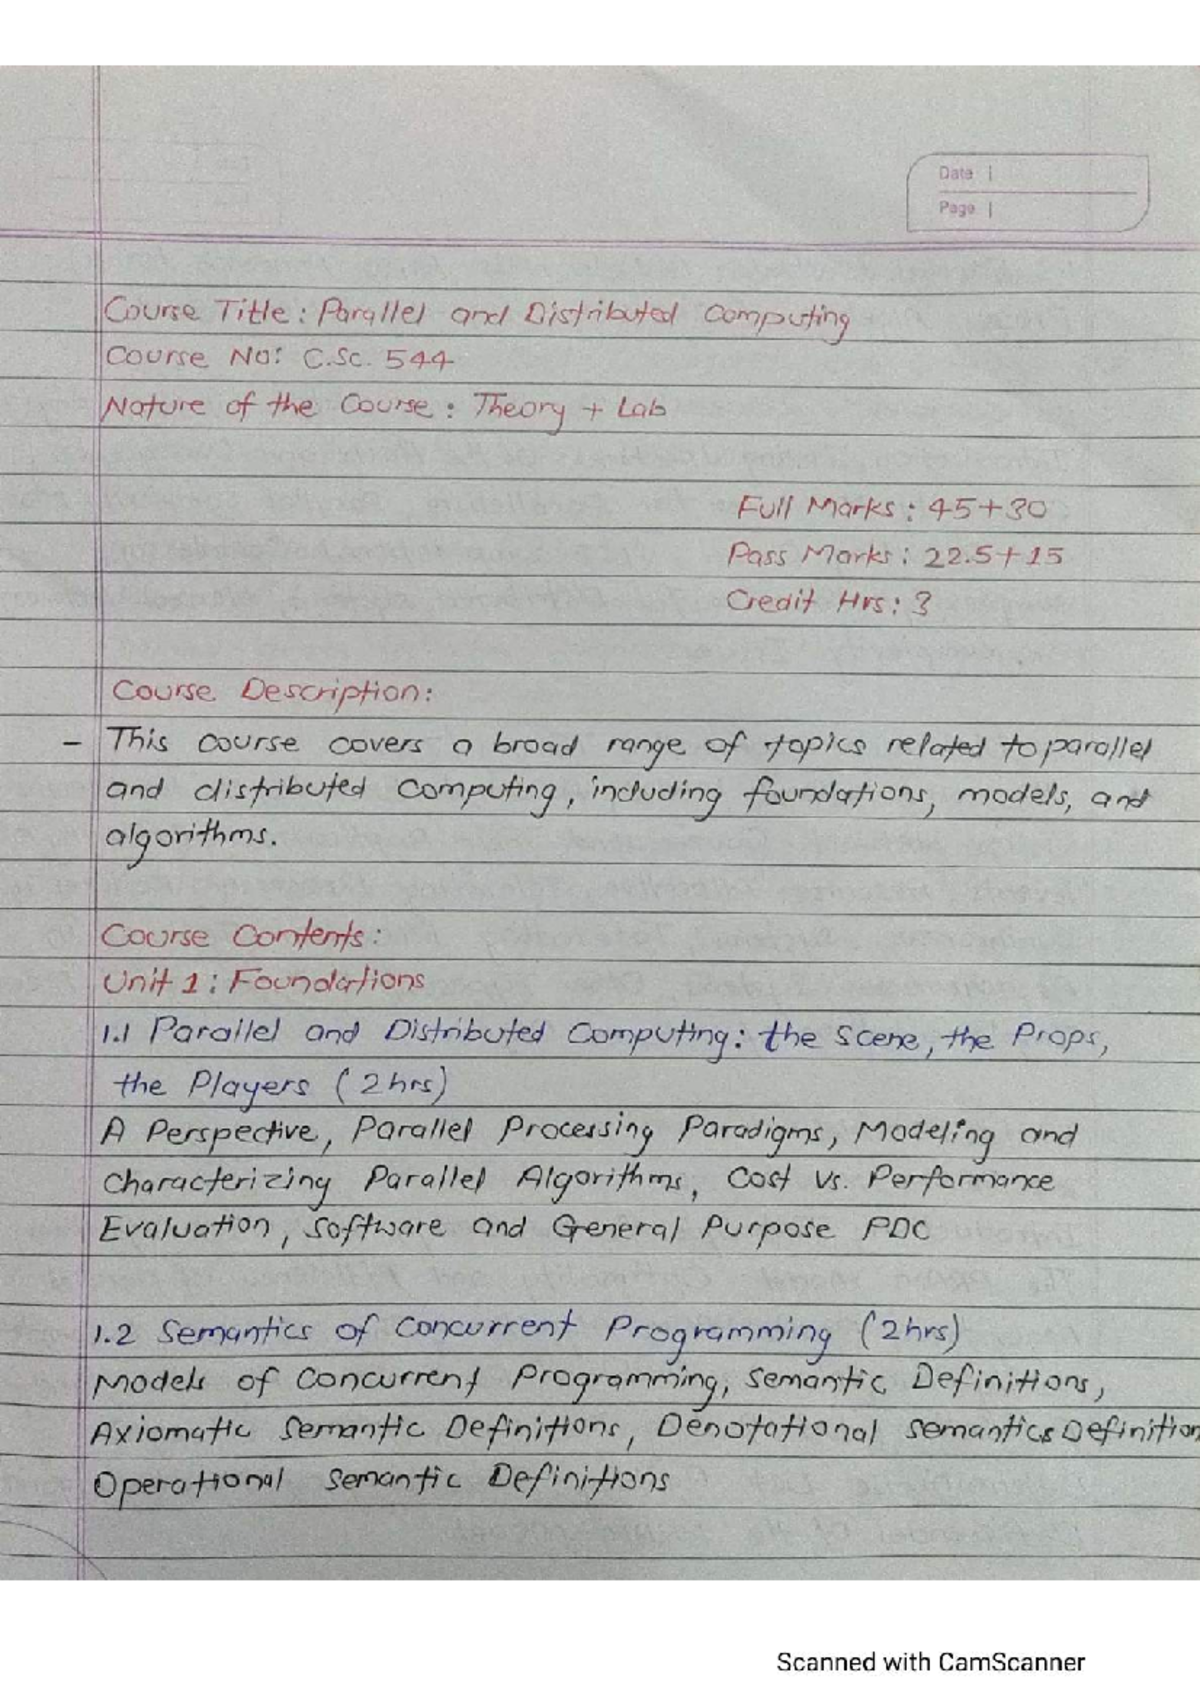 Date
Page
Course Title: Parallel and Distributed Computing
Course No: C.Sc. 544
Nature of the Course: Theory + Lab
Full Marks: 45+30
Pass Marks: 22.5+15
Credit Hrs: 3
Course Description:
- This course covers a broad range of topics related to parallel
and distributed computing, including foundations, models, and
algorithms.
Course Contents:
Unit 1: Foundations
1.1 Parallel and Distributed Computing: the Scene, the Props,
the Players (2hrs)
A Perspective, Parallel Processing Paradigms, Modeling and
Characterizing Parallel Algorithms, Cost vs. Performance
Evaluation, Software and General Purpose PDC
1.2 Semantics of Concurrent Programming (2hrs)
Models of Concurrent Programming, Semantic Definitions,
Axiomatic Semantic Definitions, Denotational Semantics Definition
Operational Semantic Definitions
Scanned with CamScanner